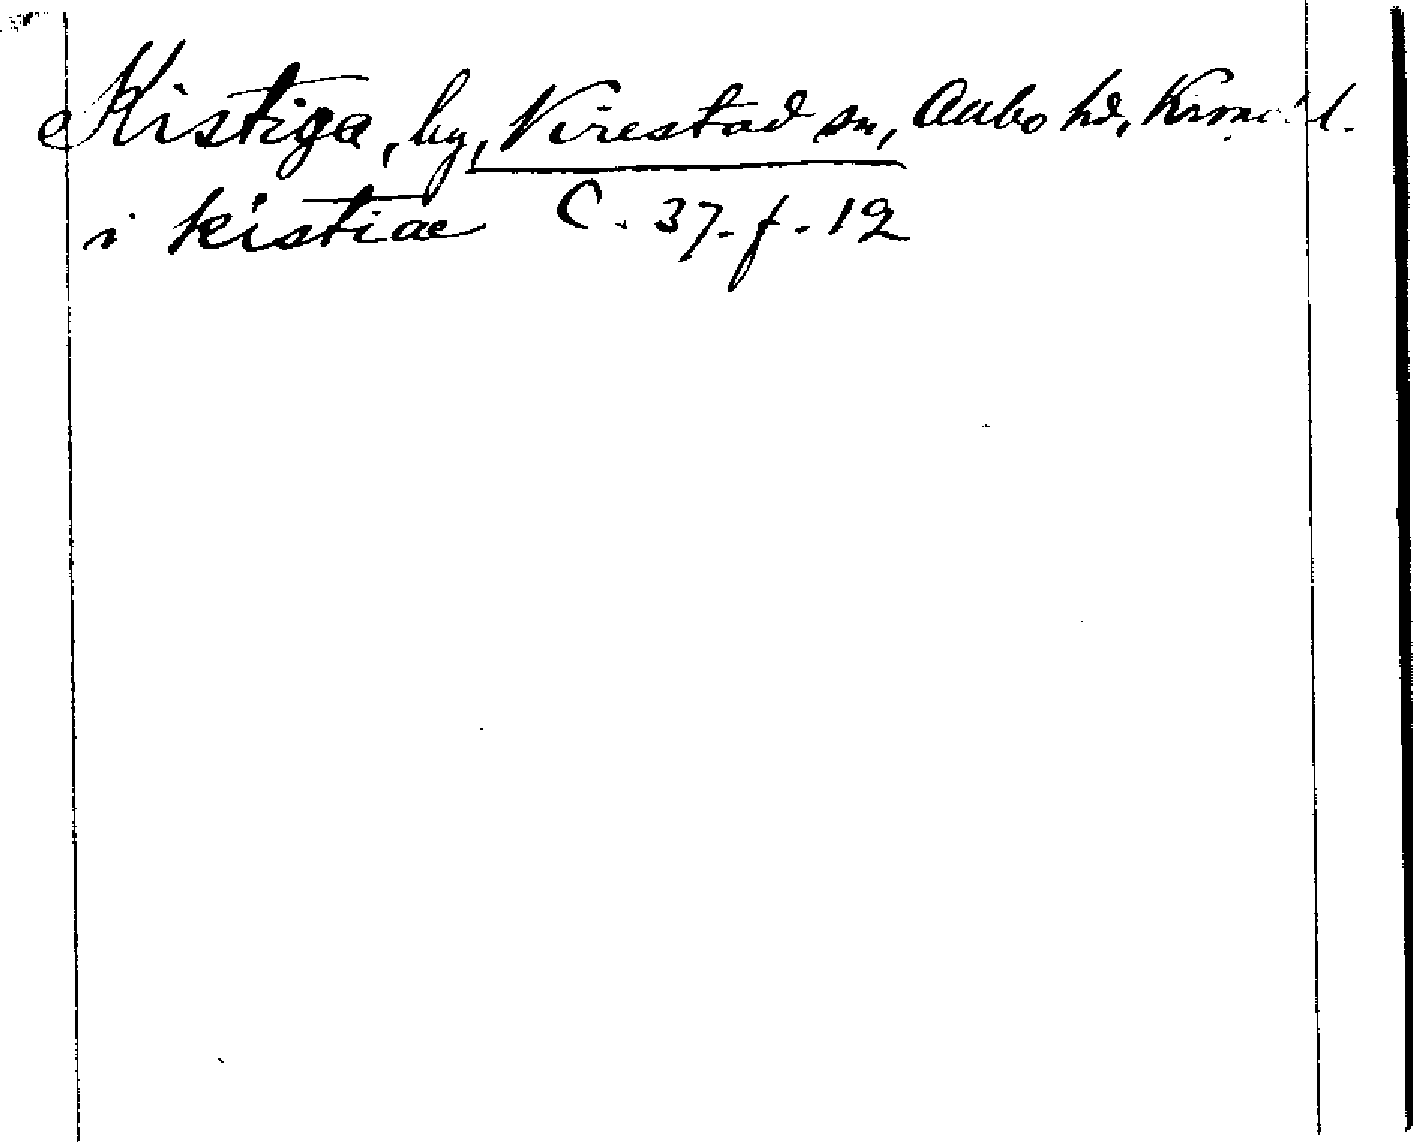 Kistiga, by, Virestad sn, Allbo hd, Kronob l.
i kistiae C. 37. f. 12